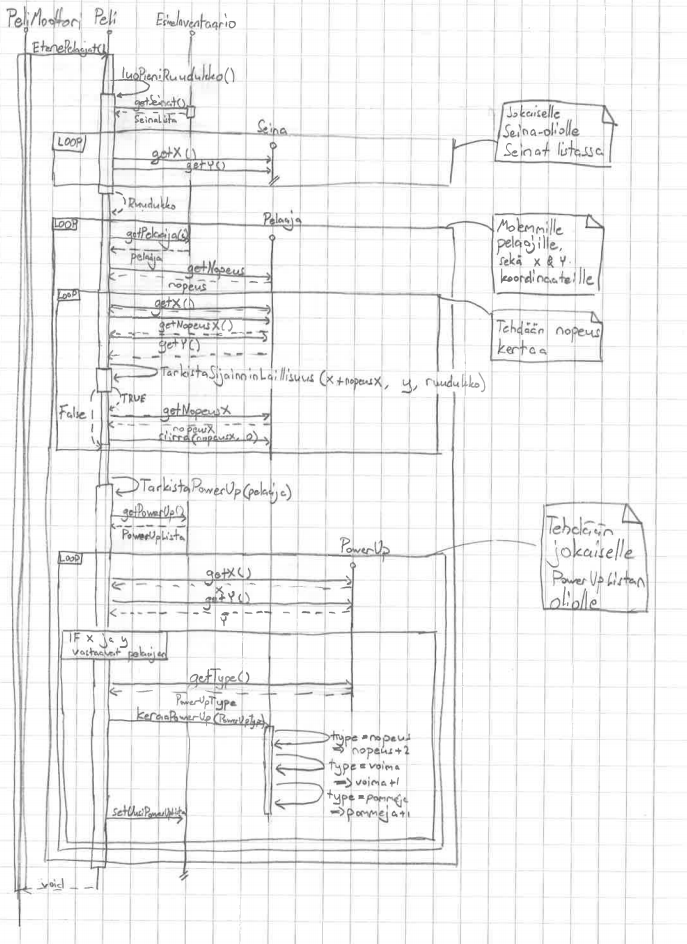 PeliMoottori Peli EsineInventaario
EtenePelaajat()
luoPieniRuudukko()
getSeinat()
SeinaLista
Seina
LOOP
getX()
getY()
Jokaiselle
Seina-oliolle
Seinat listassa
Ruudukko
LOOP
Pelaaja
getPelaaja(s)
pelaaja
getNopeus
nopeus
Molemmille
pelaajille,
sekä x & y
koordinaateille
LOOP
getX()
getNopeusX()
getY()
Tehdään nopeus
kertaa
TarkistaSijainninLaillisuus (x+nopeusX, y, ruudukko)
TRUE
False
getNopeusX
nopeusX
siirra(nopeusX, 0)
TarkistaPowerUp(pelaaja)
getPowerUp()
PowerUpLista
Tehdään
jokaiselle
PowerUpListan
oliolle
LOOP
PowerUp
getX()
x
getY()
Y
IF x ja y
vastaavat pelaajan
getType()
PowerUpType
keraaPowerUp(PowerUpType)
type=nopeus
=> nopeus+2
type=voima
=> voima+1
type=pommeja
=> pommeja+1
setUusiPowerUpLista
void